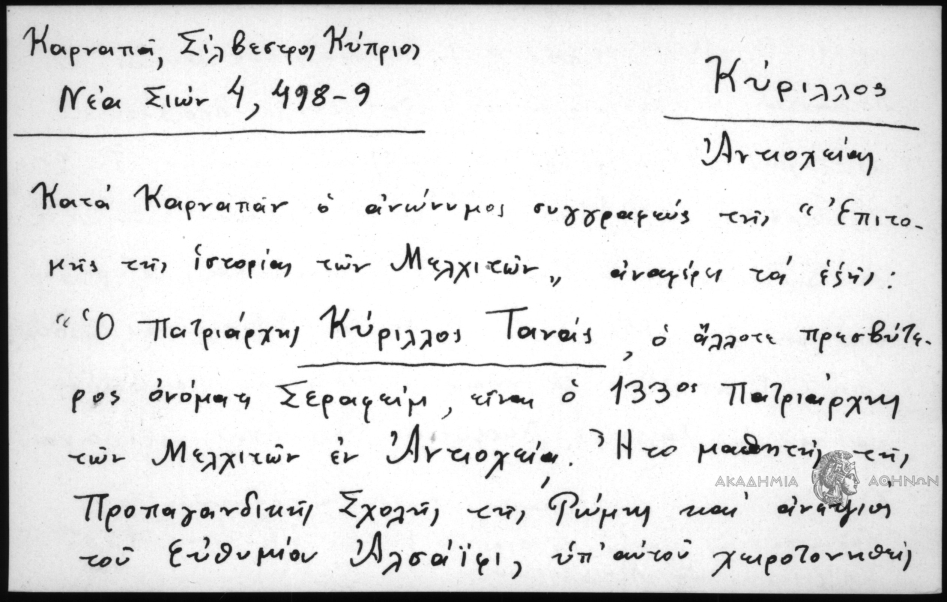 Καρναπᾶ, Σίλβεστρος Κύπριος
Νέα Σιών 4, 498-9
Κύριλλος
Ἀντιοχείας
Κατά Καρναπᾶν ὁ ἀνώνυμος συγγραφεύς τῆς "Ἐπιτο-
μῆς τῆς ἱστορίας τῶν Μελχιτῶν" ἀναφέρει τά ἑξῆς:
"Ὁ Πατριάρχης Κύριλλος Τανάς, ὁ ἄλλοτε πρεσβύτε-
ρος ὀνόματι Σεραφείμ, εἶναι ὁ 133ος Πατριάρχης
τῶν Μελχιτῶν ἐν Ἀντιοχείᾳ. Ἦτο μαθητής τῆς
ΑΚΑΔΗΜΙΑ ΑΘΗΝΩΝ
Προπαγανδικῆς Σχολῆς τῆς Ρώμης καί ἀνεψιός
τοῦ Εὐθυμίου Ἀλσάϊφι, ὑπ' αὐτοῦ χειροτονηθείς